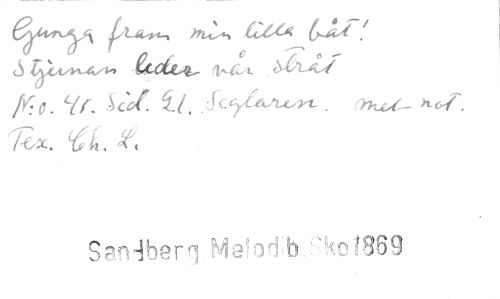 Gunga fram min lilla båt!
Stjernan leder vår stråt
N:o. 41. Sid. 21. Seglaren. met not.
Tex. Ch. L.
Sandberg Melodib. Sko 1869